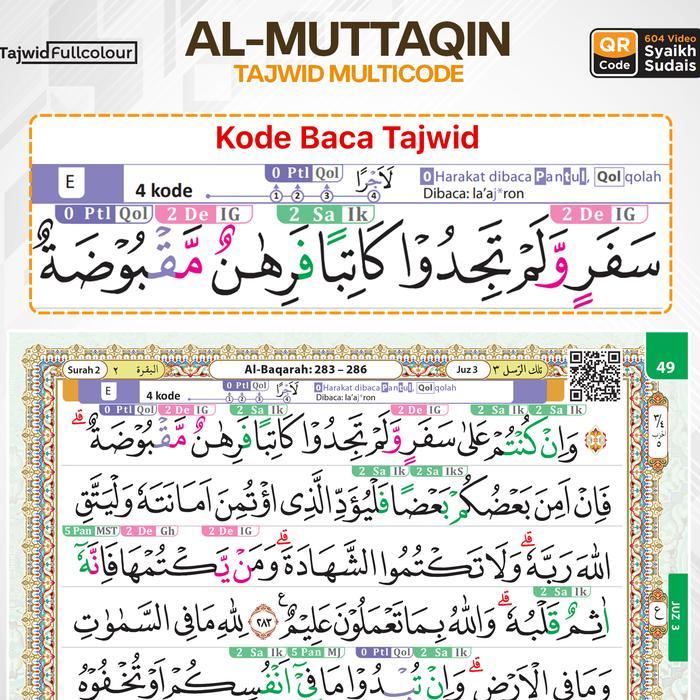 TajwidFullcolour
AL-MUTTAQIN
TAJWID MULTICODE
QR Code
604 Video
Syaikh
Sudais
Kode Baca Tajwid
E
4 kode
0 Ptl Qol
1 2 3 4
لَاَجْرًا
0 Harakat dibaca Pantul, Qol qolah
Dibaca: la'aj*ron
0 Ptl Qol 2 De IG 2 Sa Ik 2 De IG
سَفَرٍ وَّلَمْ تَجِدُوْا كَاتِبًا فَرِهٰنٌ مَّقْبُوْضَةٌ
49
Surah 2
٢ البقرة
Al-Baqarah: 283 – 286
Juz 3
تلك الرّسل ٣
E
4 kode
0 Ptl Qol
1 2 3 4
لَاَجْرًا
0 Harakat dibaca Pantul, Qol qolah
Dibaca: la'aj*ron
0 Ptl Qol 2 De IG 2 Sa Ik 2 De IG 2 Sa Ik 2 Sa Ik
وَاِنْ كُنْتُمْ عَلٰى سَفَرٍ وَّلَمْ تَجِدُوْا كَاتِبًا فَرِهٰنٌ مَّقْبُوْضَةٌ ۗ
2 Sa Ik 2 Sa IkS
فَاِنْ اَمِنَ بَعْضُكُمْ بَعْضًا فَلْيُؤَدِّ الَّذِى اؤْتُمِنَ اَمَانَتَهٗ وَلْيَتَّقِ
5 Pan MST 2 De Gh 2 De IG
اللّٰهَ رَبَّهٗ ۗ وَلَا تَكْتُمُوا الشَّهَادَةَ ۗ وَمَنْ يَّكْتُمْهَا فَاِنَّهٗٓ
2 Sa Ik
اٰثِمٌ قَلْبُهٗ ۗ وَاللّٰهُ بِمَا تَعْمَلُوْنَ عَلِيْمٌ ࣖ ٢٨٣ لِلّٰهِ مَا فِى السَّمٰوٰتِ
2 Sa Ik 5 Pan MJ 0 Ptl Qol 2 Sa Ik
وَمَا فِى الْاَرْضِ ۗ وَاِنْ تُبْدُوْا مَا فِيْٓ اَنْفُسِكُمْ اَوْ تُخْفُوْهُ
JUZ 3